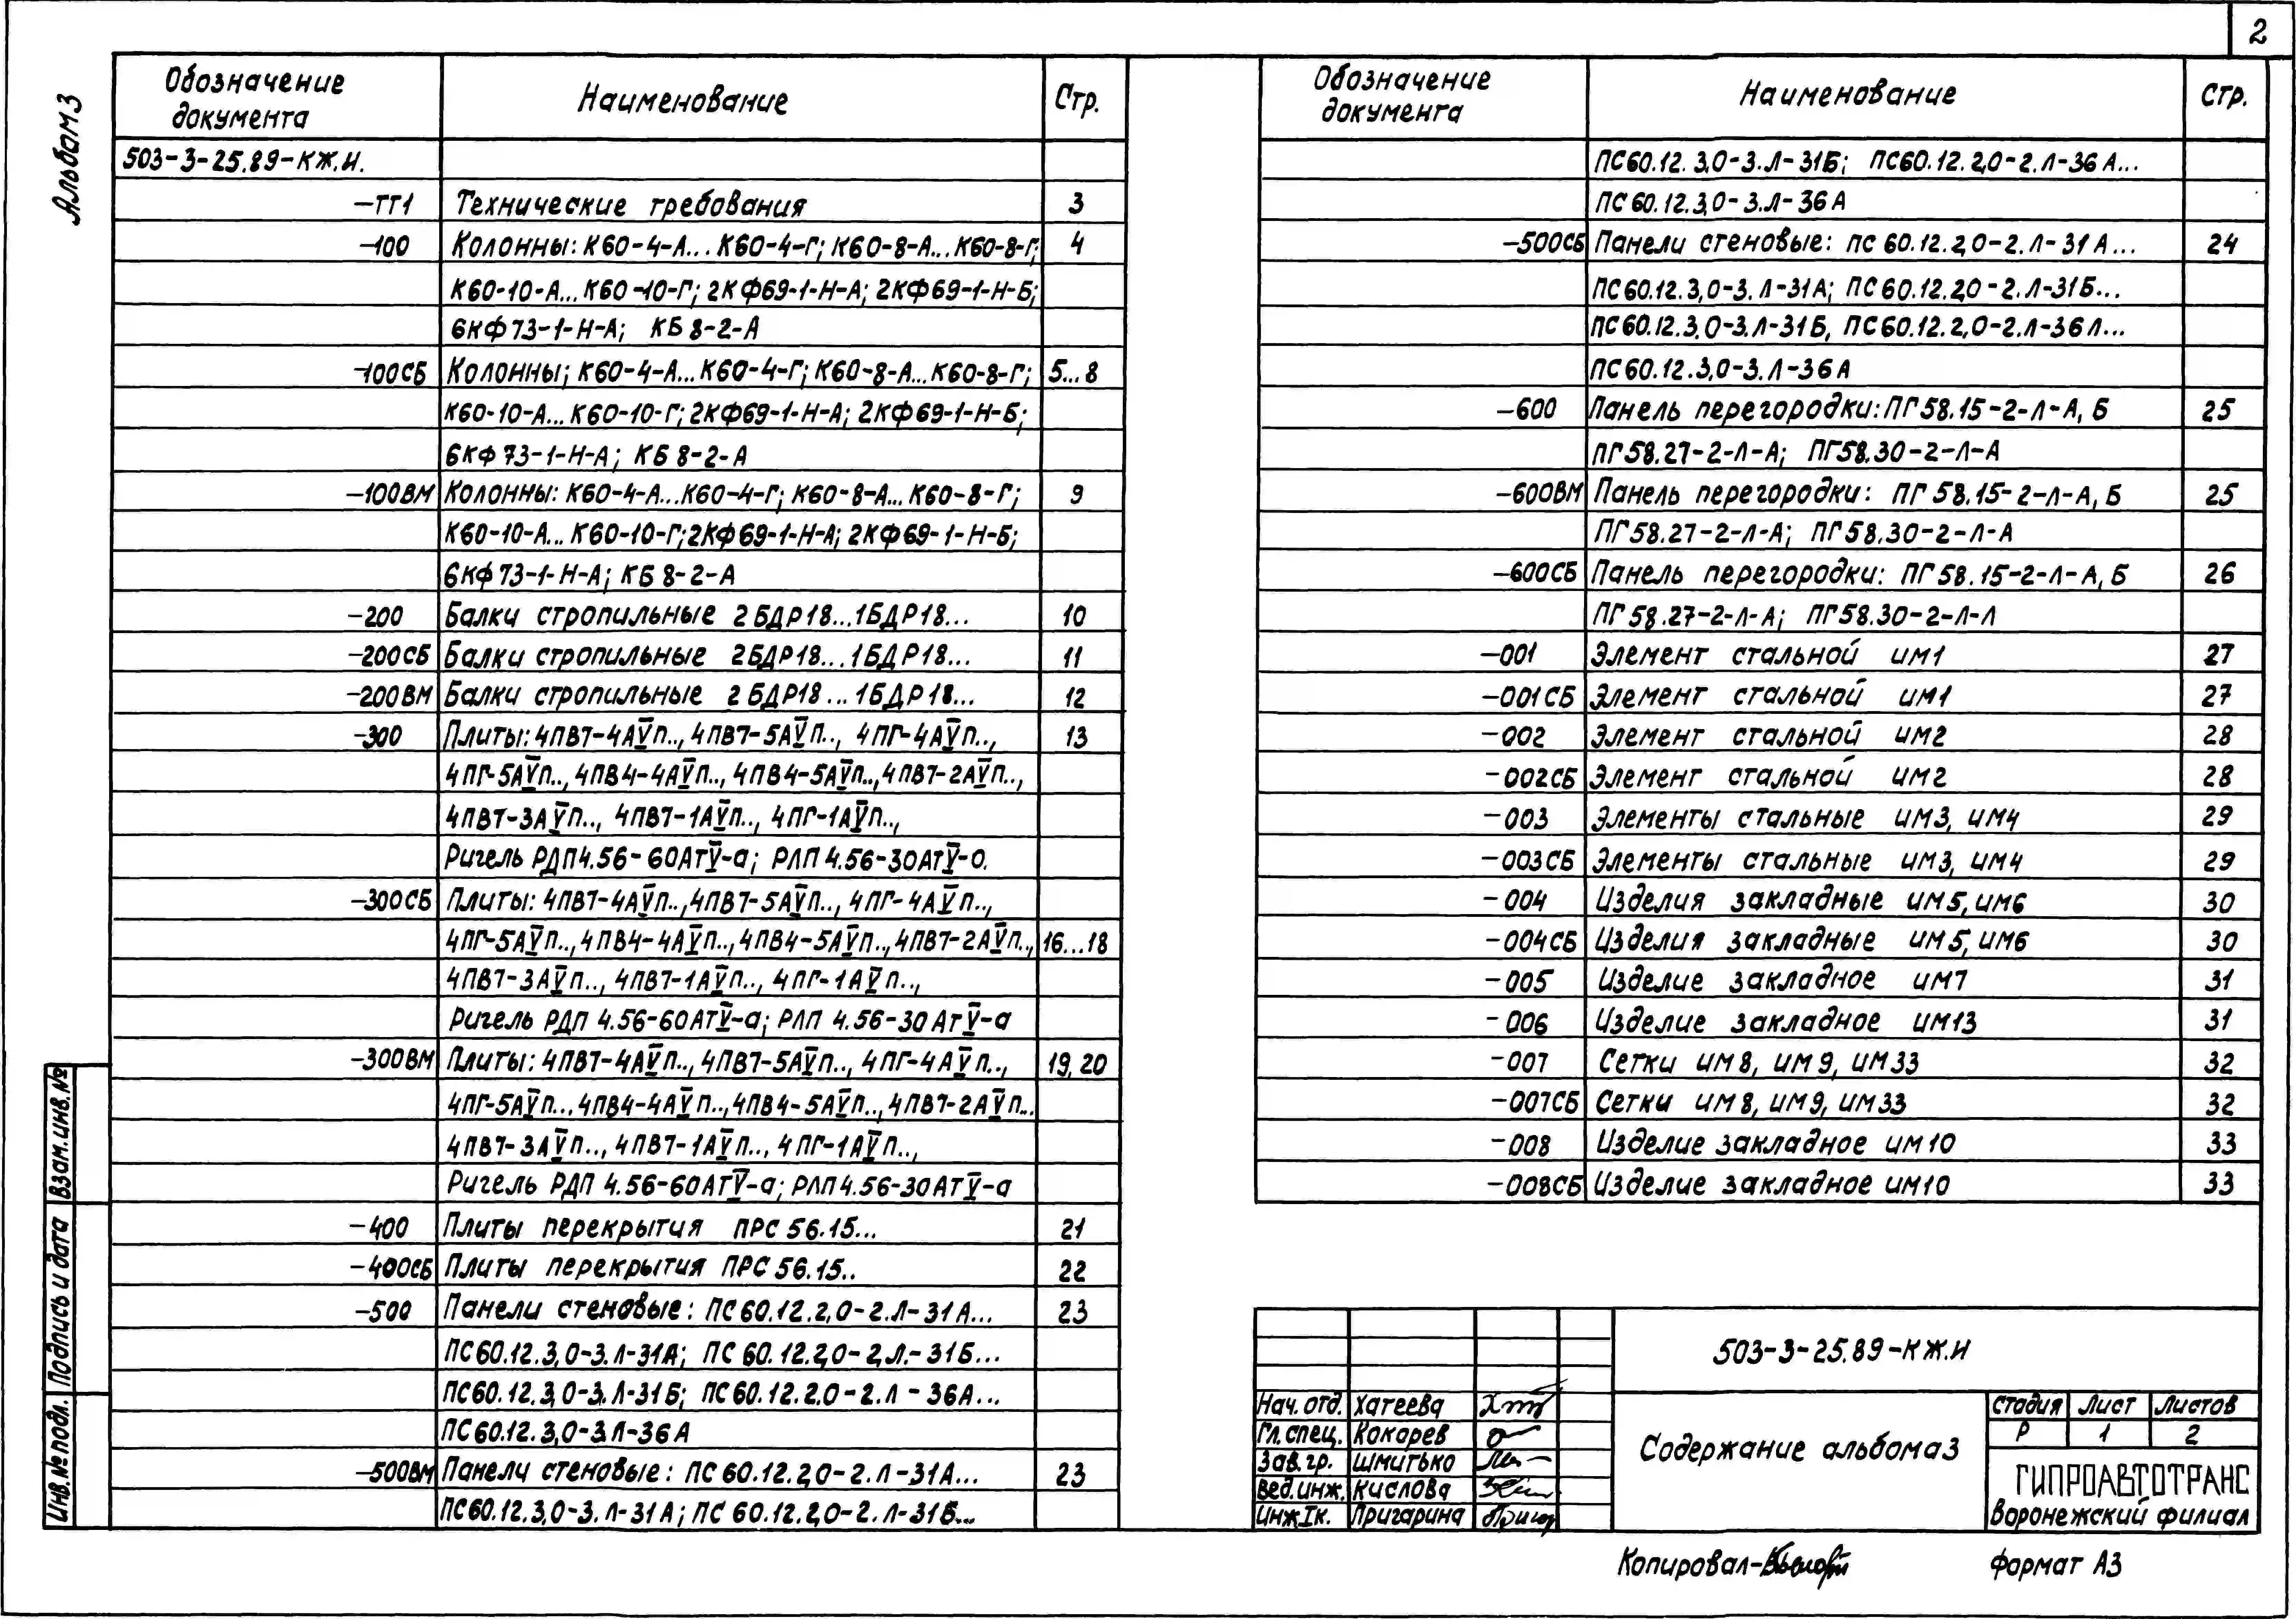 2
Альбом 3
Обозначение документа Наименование Стр.
503-3-25.89-КЖ.И.
-ТТ1 Технические требования 3
-100 Колонны: К60-4-А...К60-4-Г; К60-8-А...К60-8-Г;  4
К60-10-А...К60-10-Г; 2КФ69-1-Н-А; 2КФ69-1-Н-Б;
6КФ73-1-Н-А; КБ8-2-А
-100СБ Колонны; К60-4-А...К60-4-Г; К60-8-А...К60-8-Г; 5...8
К60-10-А...К60-10-Г; 2КФ69-1-Н-А; 2КФ69-1-Н-Б;
6КФ73-1-Н-А; КБ8-2-А
-100ВМ Колонны: К60-4-А...К60-4-Г; К60-8-А...К60-8-Г; 9
К60-10-А...К60-10-Г; 2КФ69-1-Н-А; 2КФ69-1-Н-Б;
6КФ73-1-Н-А; КБ8-2-А
-200 Балки стропильные 2БДР18...1БДР18... 10
-200СБ Балки стропильные 2БДР18...1БДР18... 11
-200ВМ Балки стропильные 2БДР18...1БДР18... 12
-300 Плиты: 4ПВ7-4АⅤп.., 4ПВ7-5АⅤп.., 4ПГ-4АⅤп.., 13
4ПГ-5АⅤп.., 4ПВ4-4АⅤп.., 4ПВ4-5АⅤп.., 4ПВ7-2АⅤп..,
4ПВ7-3АⅤп.., 4ПВ7-1АⅤп.., 4ПГ-1АⅤп..,
Ригель РДП4.56-60АтⅤ-а; РЛП4.56-30АтⅤ-а.
-300СБ Плиты: 4ПВ7-4АⅤп.., 4ПВ7-5АⅤп.., 4ПГ-4АⅤп..,
4ПГ-5АⅤп.., 4ПВ4-4АⅤп.., 4ПВ4-5АⅤп.., 4ПВ7-2АⅤп.., 16...18
4ПВ7-3АⅤп.., 4ПВ7-1АⅤп.., 4ПГ-1АⅤп..,
Ригель РДП 4.56-60АтⅤ-а; РЛП 4.56-30АтⅤ-а
-300ВМ Плиты: 4ПВ7-4АⅤп.., 4ПВ7-5АⅤп.., 4ПГ-4АⅤп.., 19, 20
4ПГ-5АⅤп.., 4ПВ4-4АⅤп.., 4ПВ4-5АⅤп.., 4ПВ7-2АⅤп..
4ПВ7-3АⅤп.., 4ПВ7-1АⅤп.., 4ПГ-1АⅤп..,
Ригель РДП 4.56-60АтⅤ-а; РЛП4.56-30АтⅤ-а
-400 Плиты перекрытия ПРС 56.15... 21
-400СБ Плиты перекрытия ПРС 56.15.. 22
-500 Панели стеновые: ПС60.12.2,0-2.Л-31А... 23
ПС60.12.3,0-3.Л-31А; ПС60.12.2,0-2.Л.-31Б...
ПС60.12.3,0-3.Л-31Б; ПС60.12.2.0-2.Л-36А...
ПС60.12.3,0-3.Л-36А
-500ВМ Панели стеновые: ПС60.12.2,0-2.Л-31А... 23
ПС60.12.3,0-3.Л-31А; ПС60.12.2,0-2.Л-31Б...
Обозначение документа Наименование Стр.
ПС60.12.3,0-3.Л-31Б; ПС60.12.2,0-2.Л-36А...
ПС60.12.3,0-3.Л-36А
-500СБ Панели стеновые: ПС60.12.2,0-2.Л-31А... 24
ПС60.12.3,0-3.Л-31А; ПС60.12.2,0-2.Л-31Б...
ПС60.12.3,0-3.Л-31Б, ПС60.12.2,0-2.Л-36А...
ПС60.12.3,0-3.Л-36А
-600 Панель перегородки: ПГ58.15-2-Л-А, Б 25
ПГ58.27-2-Л-А; ПГ58.30-2-Л-А
-600ВМ Панель перегородки: ПГ58.15-2-Л-А, Б 25
ПГ58.27-2-Л-А; ПГ58.30-2-Л-А
-600СБ Панель перегородки: ПГ58.15-2-Л-А, Б 26
ПГ58.27-2-Л-А; ПГ58.30-2-Л-А
-001 Элемент стальной им1 27
-001СБ Элемент стальной им1 27
-002 Элемент стальной им2 28
-002СБ Элемент стальной им2 28
-003 Элементы стальные им3, им4 29
-003СБ Элементы стальные им3, им4 29
-004 Изделия закладные им5, им6 30
-004СБ Изделия закладные им5, им6 30
-005 Изделие закладное им7 31
-006 Изделие закладное им13 31
-007 Сетки им8, им9, им33 32
-007СБ Сетки им8, им9, им33 32
-008 Изделие закладное им10 33
-008СБ Изделие закладное им10 33
Взам.инв.№
Подпись и дата
Инв.№ подл.
503-3-25.89-КЖ.И
Нач.отд. Хатеева
Гл.спец. Кокорев
Зав.гр. Шмитько
Вед.инж. Кислова
Инж.Iк. Пригарина
Содержание альбома 3
Стадия Лист Листов
Р 1 2
ГИПРОАВТОТРАНС
Воронежский филиал
Копировал-
Формат А3